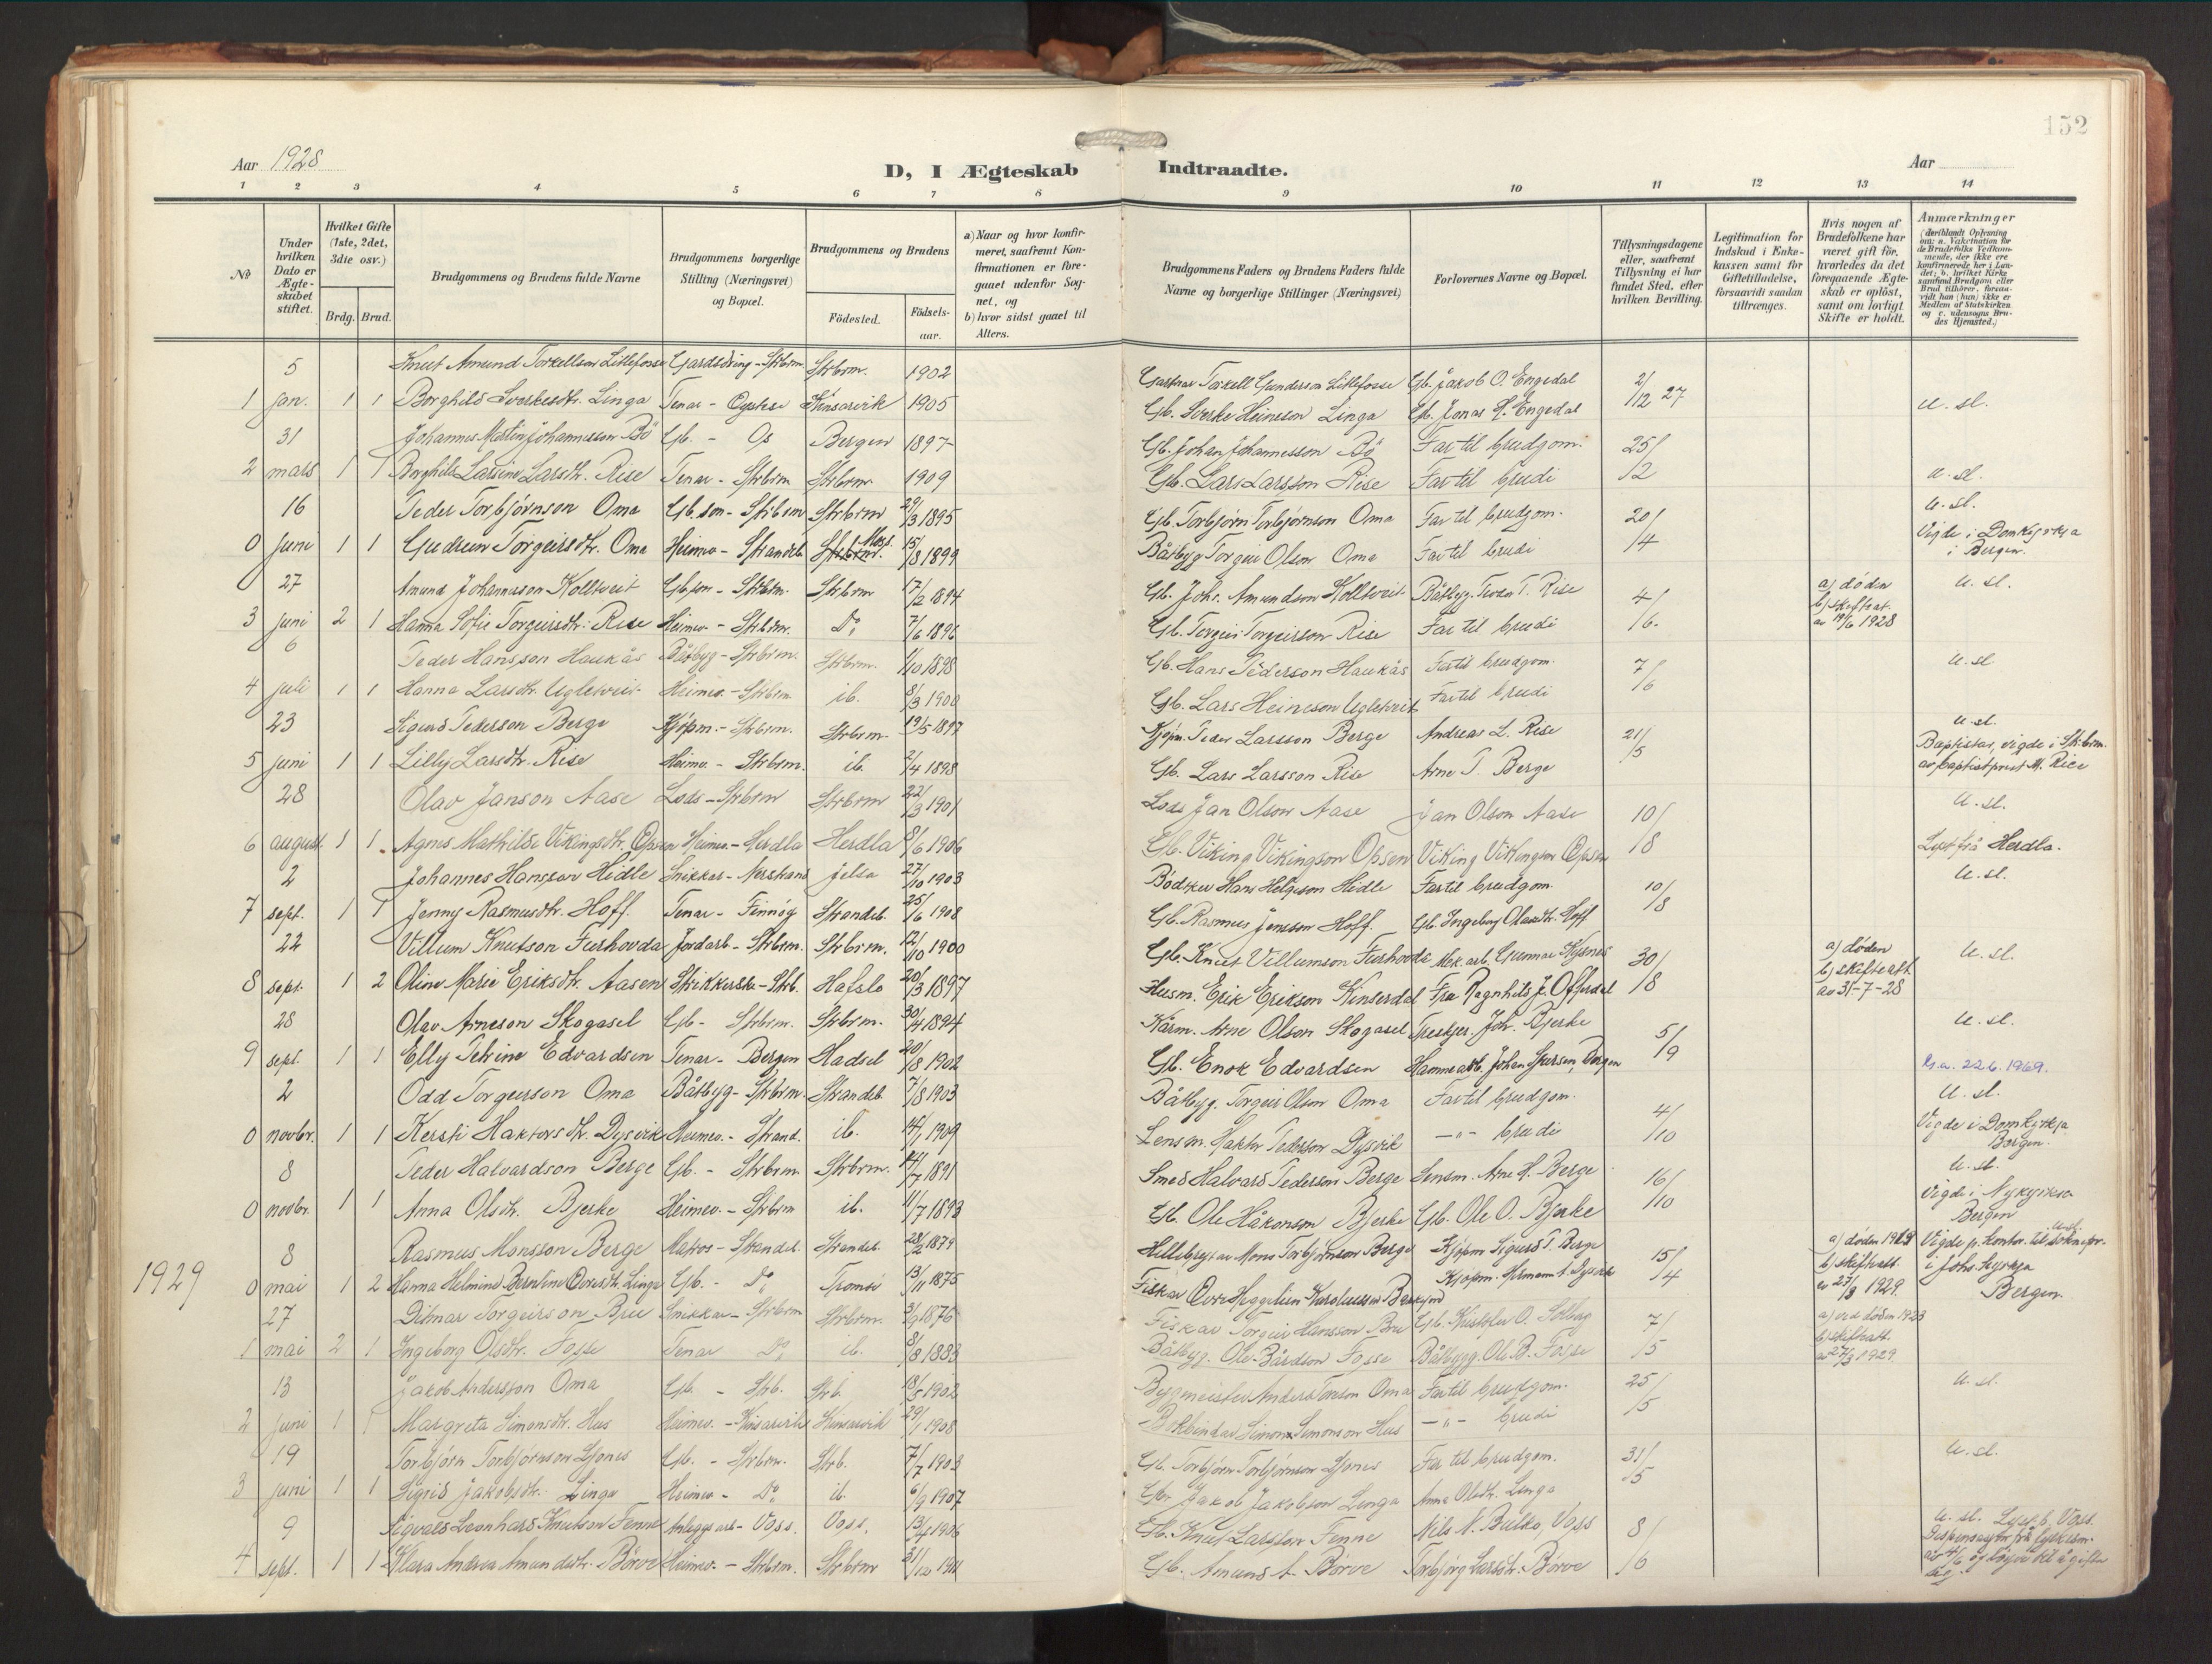 152
Aar 1928
D, I Ægteskab Indtraadte.
Aar
1 2 3 4 5 6 7 8 9 10 11 12 13 14
No
Under hvilken Dato er Ægteskabet stiftet.
Hvilket Gifte (1ste, 2det, 3die osv.)
Brdg. Brud.
Brudgommens og Brudens fulde Navne
Brudgommens borgerlige Stilling (Næringsvei) og Bopæl.
Brudgommens og Brudens
Födested.
Födselsaar.
a) Naar og hvor konfirmeret, saafremt Konfirmationen er foregaaet udenfor Sognet, og
b) hvor sidst gaaet til Alters.
Brudgommens Faders og Brudens Faders fulde Navne og borgerlige Stillinger (Næringsvei)
Forlovernes Navne og Bopæl.
Tillysningsdagene eller, saafremt Tillysning ei har fundet Sted, efter hvilken Bevilling.
Legitimation for Indskud i Enkekassen samt for Giftetilladelse, forsaavidt saadan tiltrænges.
Hvis nogen af Brudefolkene har været gift før, hvorledes da det foregaaende Ægteskab er oplöst, samt om lovligt Skifte er holdt.
Anmærkninger (deriblandt Oplysning om: a. Vakcination for de Brudefolks Vedkommende, der ikke ere konfirmerede her i Landet; b. hvilket Kirkesamfund Brudgom eller Brud tilhører, forsaavidt han (hun) ikke er Medlem af Statskirken og c. udensogns Brudes Hjemsted.)
5 Knut Amund Torkellson Litlefosse Gardsdreng - Strbrm. Strbrm. 1902 Torkell Gunderson Litlefosse Gb. Jakob O. Engedal 2/
1 jan. 1 1 Borghild Sverkesdtr. Linga Tenar - Øystese Kinsarvik 1905 Gb. Sverke Heineson Linga Gb. Jonas H. Engedal /12 27 u. sl.
31 Johannes Martin Johannesson Bö Gb. - Os Bergen 1897 Gb. Johan Johannesson Bö Far til brudgom. 25/
2 mars 1 1 Borghild Larsine Larsdtr. Rise Tenar - Strbrm Strbrm 1909 Gb. Lars Larsson Rise Far til brudi /2 u. sl.
16 Peder Torbjørnson Oma Gb.son - Strbrm Strbrm 29/3 1895 Gb. Torbjørn Torbjørnson Oma Far til brudgom. 20/ u. sl.
0 Juni 1 1 Gudrun Torgeirsdtr. Oma Heimev - Strandeb 15/8 1899 Båtbyg Torgeir Olson Oma Far til brudi /4 Vigde i Domkyrkja i Bergen.
27 Amund Johannesson Kolltveit Gb.son - Strbrm. Strbrm 17/2 1894 Gb. Johs. Amundson Kolltveit Båtbyg. T. Rise 4/ a) døden u. sl.
3 juni 2 1 Hanna Sofie Torgeirsdtr. Rise Heimev - Strbrm. Do 7/6 1896 Gb. Torgeir Torgeirson Rise Far til brudi /6. b) skifteat. av 19/6 1928
6 Peder Hansson Haukås Båtbyg - Strbrm. Strbrm. 1/10 1898 Gb. Hans Pederson Haukås Far til brudgom. 7/ u. sl
4 juli 1 1 Hanna Larsdtr. Ugletveit Heimev. - Strbrm ib. 8/3 1900 Gb. Lars Heineson Ugletveit Far til brudi /6
23 Sigurd Pederson Berge Kjøpm. - Strbrm. Strbrm 19/5 1897 Kjøpm. Peder Larsson Berge Andreas L. Rise 21/ u. sl.
5 juni 1 1 Lilly Larsdtr. Rise Heimev. - Strbrm. ib. 2/4 1898 Gb. Lars Larsson Rise Arne P. Berge /5 Baptistar, vigde i Strbrm. av baptistprest M. Rise
28 Olav Janson Aase Lods - Strbrm Strbrm 22/3 1901 Lods Jan Olson Aase Jan Olson Aase 10/ u. sl.
6 august 1 1 Agnes Mathilde Vikingsdtr. Opsen Heimev. - Herdla Herdla 8/6 1906 Gb. Viking Vikingson Opsen Viking Vikingson Opsen /8 Lyst frå Herdla.
2 Johannes Hansson Hidle Snikkar - Nerstrand Jelsa 27/10 1903 Bödker Hans Helgeson Hidle Far til brudgom. 10/ u. sl.
7 sept. 1 1 Jenny Rasmusdtr. Hoff. Tenar - Finnöy Strandeb. 25/6 1908 Gb. Rasmus Jensson Hoff. Gb. Ingeborg Olasdtr. Hoff /8
22 Villum Knutson Furhovda Jordarb - Strbrm. Strbrm. 12/10 1900 Gb. Knut Villumson Furhovda Mek. arb. Gunnar 30/ a) døden u. sl.
8 sept. 1 2 Oline Marie Eriksdtr. Aasen Strikkerske - Strb. Hafslo 20/3 1897 Husm. Erik Erikson Kinserdal Fra Ragnhild J. Offerdal /8 b) skifteatt. av 31-7-28
28 Olav Arneson Skogasel Gb - Strbrm. Strbrm. 30/4 1894 Kårm. Arne Olson Skogasel Joh. Bjerke 5/ u. sl.
9 sept. 1 1 Elly Petrine Edvardsen Tenar - Bergen Hadsel 20/8 1902 Gb. Enok Edvardsen Hamnearb. Johan Bergen /9 22.6.1969.
2 Odd Torgeirson Oma Båtbyg - Strbrm. Strandeb 7/8 1903 Båtbyg. Torgeir Olson Oma Far til brudgom. 4/ u. sl.
0 novbr. 1 1 Kersti Haktorsdtr. Dysvik Heimev. - Strand. ib. 14/1 1909 Lensm. Haktor Pederson Dysvik —"— brudi /10 Vigde i Domkyrkja Bergen.
8 Peder Halvardson Berge Gb. - Strbrm Strbrm. 14/7 1891 Smed Halvard Pederson Berge Lensm. Arne H. Berge 16/ u. sl.
0 novbr. 1 1 Anna Olsdtr. Bjerke Heimev. - Strbrm ib. 11/7 1893 Gb. Ole Håkonson Bjerke Gb. Ole O. Bjerke /10 Vigde i Nykyrkja Bergen
8 Rasmus Monsson Berge Matros - Strandeb. Strandeb. 28/2 1879 Mons Torbjørnson Berge Kjøpm Sigurd P. Berge 15/ a) døden
1929
0 mai 1 2 Hanna Helmine Berntine Linga Gb. - Do Tromsö 13/11 1875 Fiskar Kjøpm. Hermann A. Dysvik /4 b) skifteatt. av 27/3 1929. i Johs. kyrkja Bergen.
27 Ditmar Torgeirson Bru Snikkar - Strbrm Strbrm. 2/9 1876 Fiskar Torgeir Hansson Bru Gb. Kristofer O. 7/ a) ved døden 1923
1 mai 2 1 Ingeborg Olsdtr. Fosse Tenar Do ib. 8/8 1883 Båtbyg. Ole Bårdson Fosse Båtbygg. Ole B. Fosse /5 b) skifteatt. av 27/3 1929.
13 Jakob Andersson Oma Gb. - Strb. Strb. 18/5 1902 Bygmeister Anders Oma Far til brudgom. 25/ u. sl.
2 juni 1 1 Margreta Simonsdtr. Hus Heimev. - Kinsarvik Kinsarvik 29/1 1908 Bokbindar Simon Simonson Hus —"— brudi /5
19 Torbjørn Torbjørnson Ljones Gb. - Strbrm. Strb. 7/7 1903 Gb. Torbjørn Torbjørnson Ljones Far til brudgom. 31/ u. sl.
3 juni 1 1 Sigrid Jakobsdtr. Linga Heimev - Do ib. 6/9 1907 Gbr Jakob Jakobson Linga Anna Olsdtr. Linga /5
9 Sigvald Leonhard Knutson Fenne Anleggsarb - Voss. Voss. 13/4 1906 Gb. Knut Larsson Fenne Nils N. Voss 8/ u. sl. Lyst Voss.
4 sept. 1 1 Klara Andrea Amundsdtr. Börve Heimev. - Strbrm. Strbrm 31/ Gb. Amund A. Börve Torbjörg Larsdtr. Börve /6 Dispensasjon frå lysn.